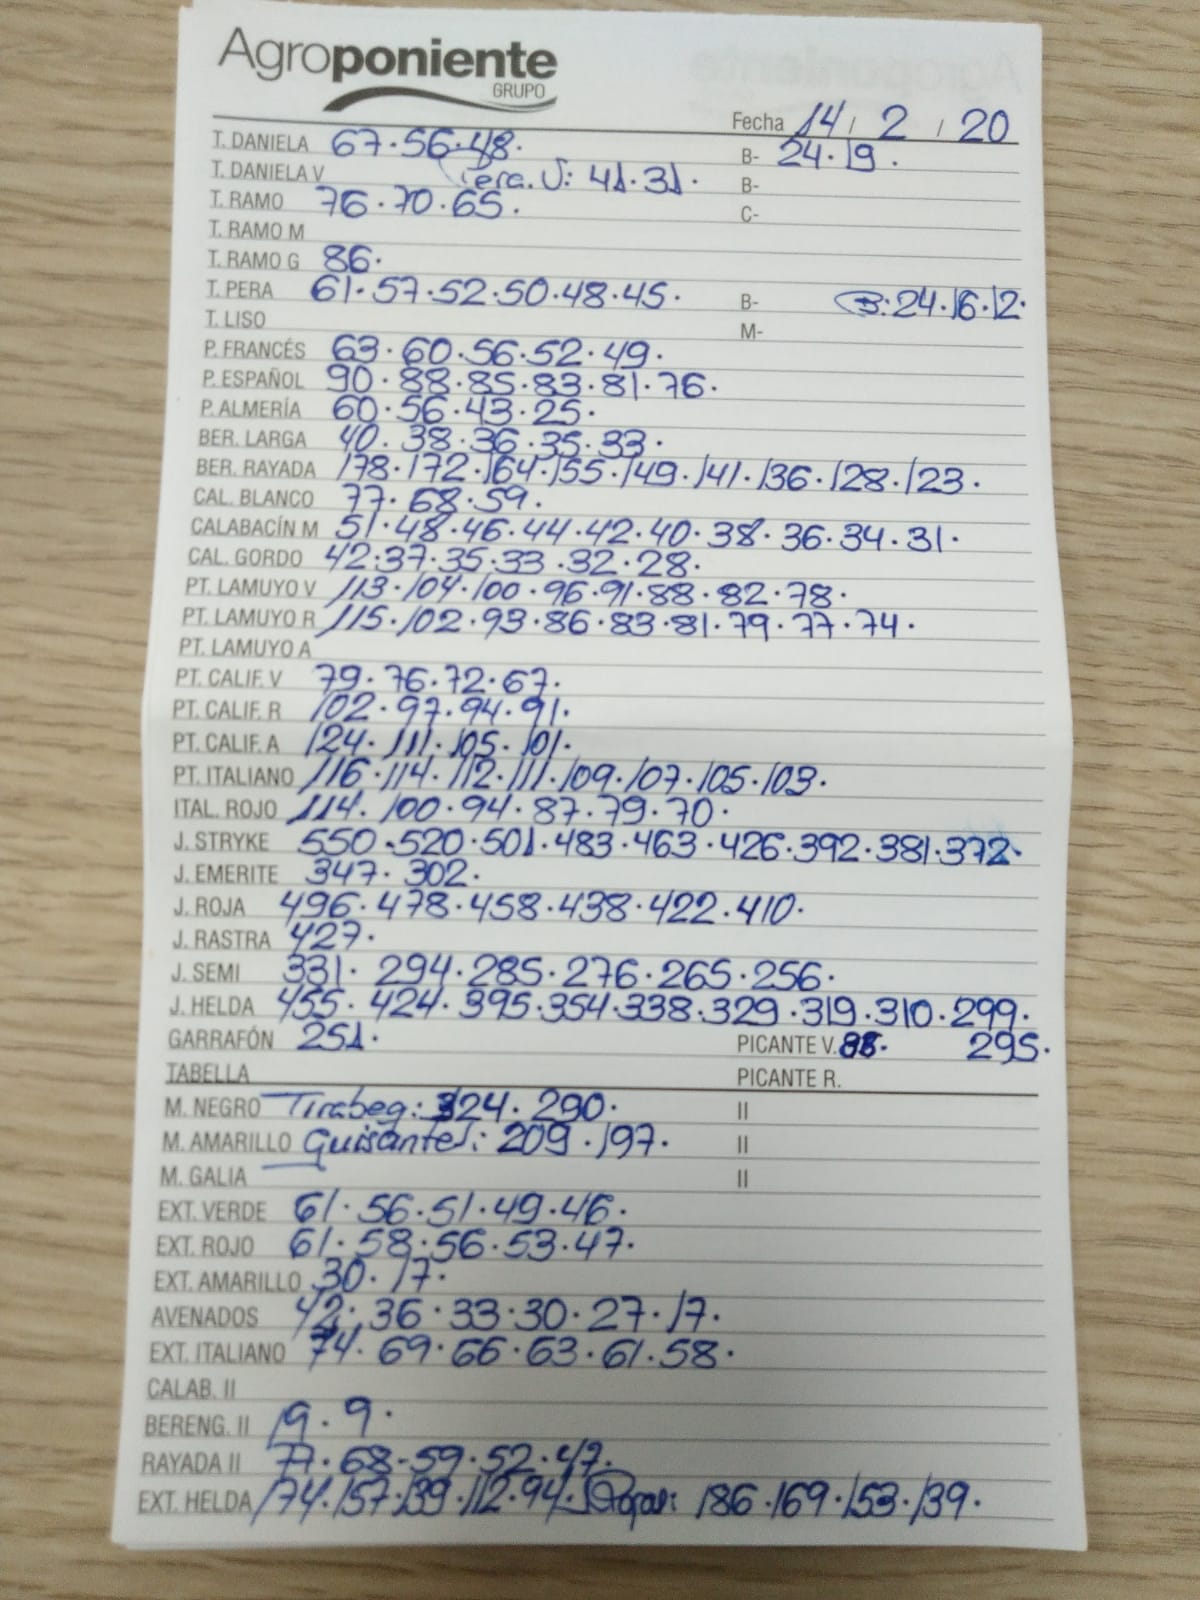 Agroponiente
GRUPO
Fecha 14 / 2 / 20
T. DANIELA 67·56·48. B- 24·19.
T. DANIELA V Pera. V: 41·31. B-
T. RAMO 76·70·65. C-
T. RAMO M
T. RAMO G 86.
T. PERA 61·57·52·50·48·45. B- B:24·16·12.
T. LISO M-
P. FRANCÉS 63·60·56·52·49.
P. ESPAÑOL 90·88·85·83·81·76.
P. ALMERÍA 60·56·43·25.
BER. LARGA 40·38·36·35·33.
BER. RAYADA 178·172·164·155·149·141·136·128·123.
CAL. BLANCO 77·68·59.
CALABACÍN M 51·48·46·44·42·40·38·36·34·31.
CAL. GORDO 42·37·35·33·32·28.
PT. LAMUYO V 113·104·100·96·91·88·82·78.
PT. LAMUYO R 115·102·93·86·83·81·79·77·74.
PT. LAMUYO A
PT. CALIF. V 79·76·72·67.
PT. CALIF. R 102·97·94·91.
PT. CALIF. A 124·111·105·101.
PT. ITALIANO 116·114·112·111·109·107·105·103.
ITAL. ROJO 114·100·94·87·79·70.
J. STRYKE 550·520·501·483·463·426·392·381·372.
J. EMERITE 347·302.
J. ROJA 496·478·458·438·422·410.
J. RASTRA 427.
J. SEMI 331·294·285·276·265·256.
J. HELDA 455·424·395·354·338·329·319·310·299.
GARRAFÓN 251. PICANTE V. 295.
TABELLA PICANTE R.
M. NEGRO Tirabeq: 324·290. II
M. AMARILLO Guisantes: 209·197. II
M. GALIA II
EXT. VERDE 61·56·51·49·46.
EXT. ROJO 61·58·56·53·47.
EXT. AMARILLO 30·17.
AVENADOS 42·36·33·30·27·17.
EXT. ITALIANO 74·69·66·63·61·58.
CALAB. II
BERENG. II 19·9.
RAYADA II 77·68-59·52·47.
EXT. HELDA 174·157·139·112·94. Rojas: 186·169·153·139.